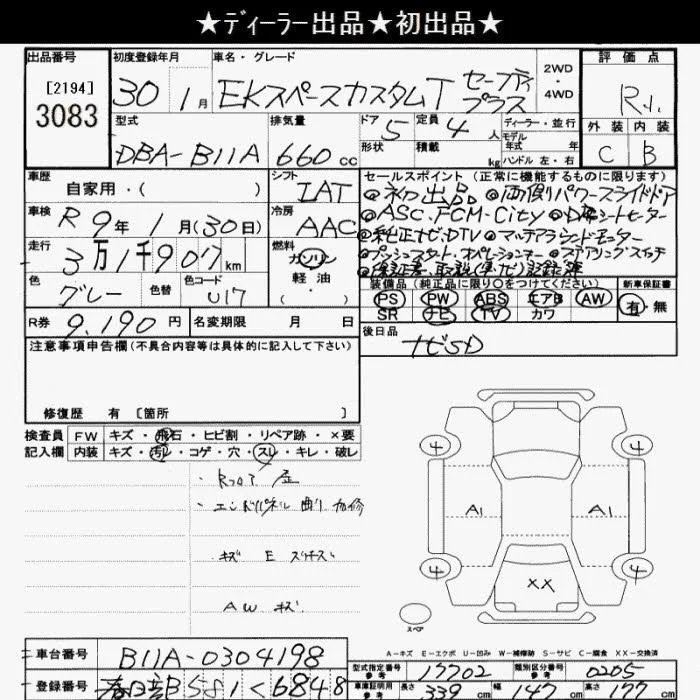 ★ディーラー出品★初出品★
出品番号
[2194]
3083
初度登録年月
30 1月
車名・グレード
EKスペースカスタムT セーフティプラス
2WD・4WD
評価点
R1.
外装 内装
C B
型式
DBA-B11A
排気量
660cc
ドア 5
形状
定員 4人
積載 kg
ディーラー・並行
モデル年式 年
ハンドル 左・右
車歴
自家用・( )
シフト
IAT
冷房
AAC
車検
R9年1月(30日)
走行
3万1千907km
燃料
ガソリン
軽油
・( )
色
グレー
色替
色コード
U17
R券 9,190円
名変期限 月 日
セールスポイント(正常に機能するものに限ります)
◎初出品 ◎両側パワースライドドア
◎ASC.FCM-City ◎D席シートヒーター
◎純正ナビ.DTV ◎マルチアラウンドモニター
◎プッシュスタート・オペレーションキー ◎ステアリングスイッチ
◎保証書、取説(車.ナビ)記録簿
装備品(純正品に限り○をつけてください)
PS PW ABS エアB AW
SR ナビ TV カワ
新車保証書
有・無
後日品
ナビSD
注意事項申告欄(不具合内容等は具体的に記入して下さい)
修復歴 有 [箇所 ]
検査員記入欄
FW キズ・飛石・ヒビ割・リペア跡・×要
内装 キズ・汚レ・コゲ・穴・スレ・キレ・破レ
・Rフロア 歪
・エンドパネル 曲り 加修
キズ E
AW キズ
4 4
A1 A1
4 4
XX
スペア
A-キズ E-エクボ U-凹み W-補修跡 S-サビ C-腐食 XX-交換済
車台番号 B11A-0304198
登録番号 春日部581く6848
型式指定番号 参考 17702
類別区分番号 参考 0205
車庫証明用 参考 長さ 339cm 幅 147cm 高さ 177cm